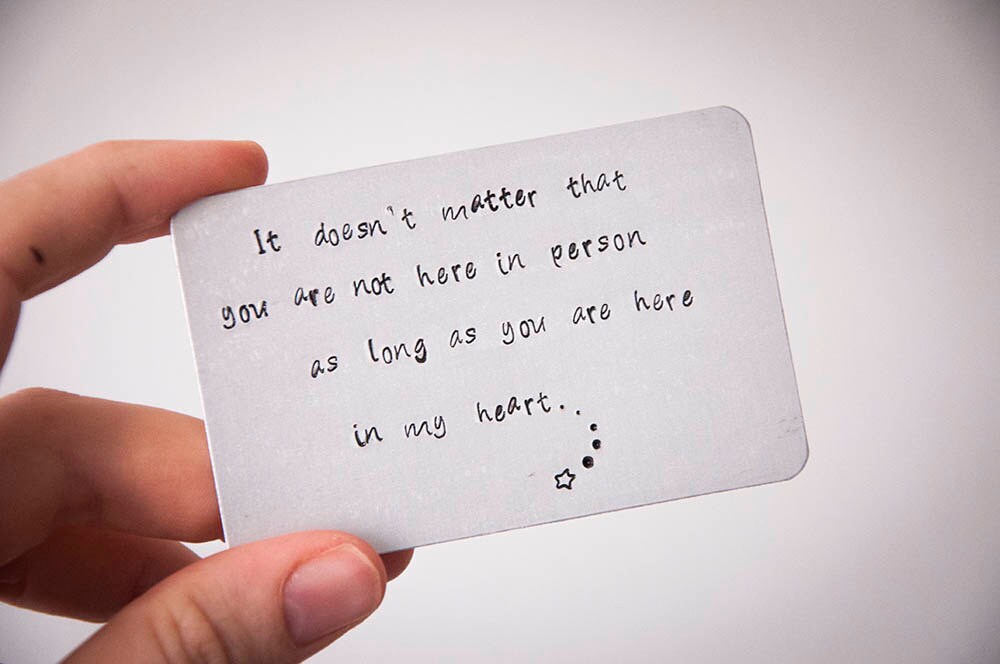 It doesn't matter that
you are not here in person
as long as you are here
in my heart..